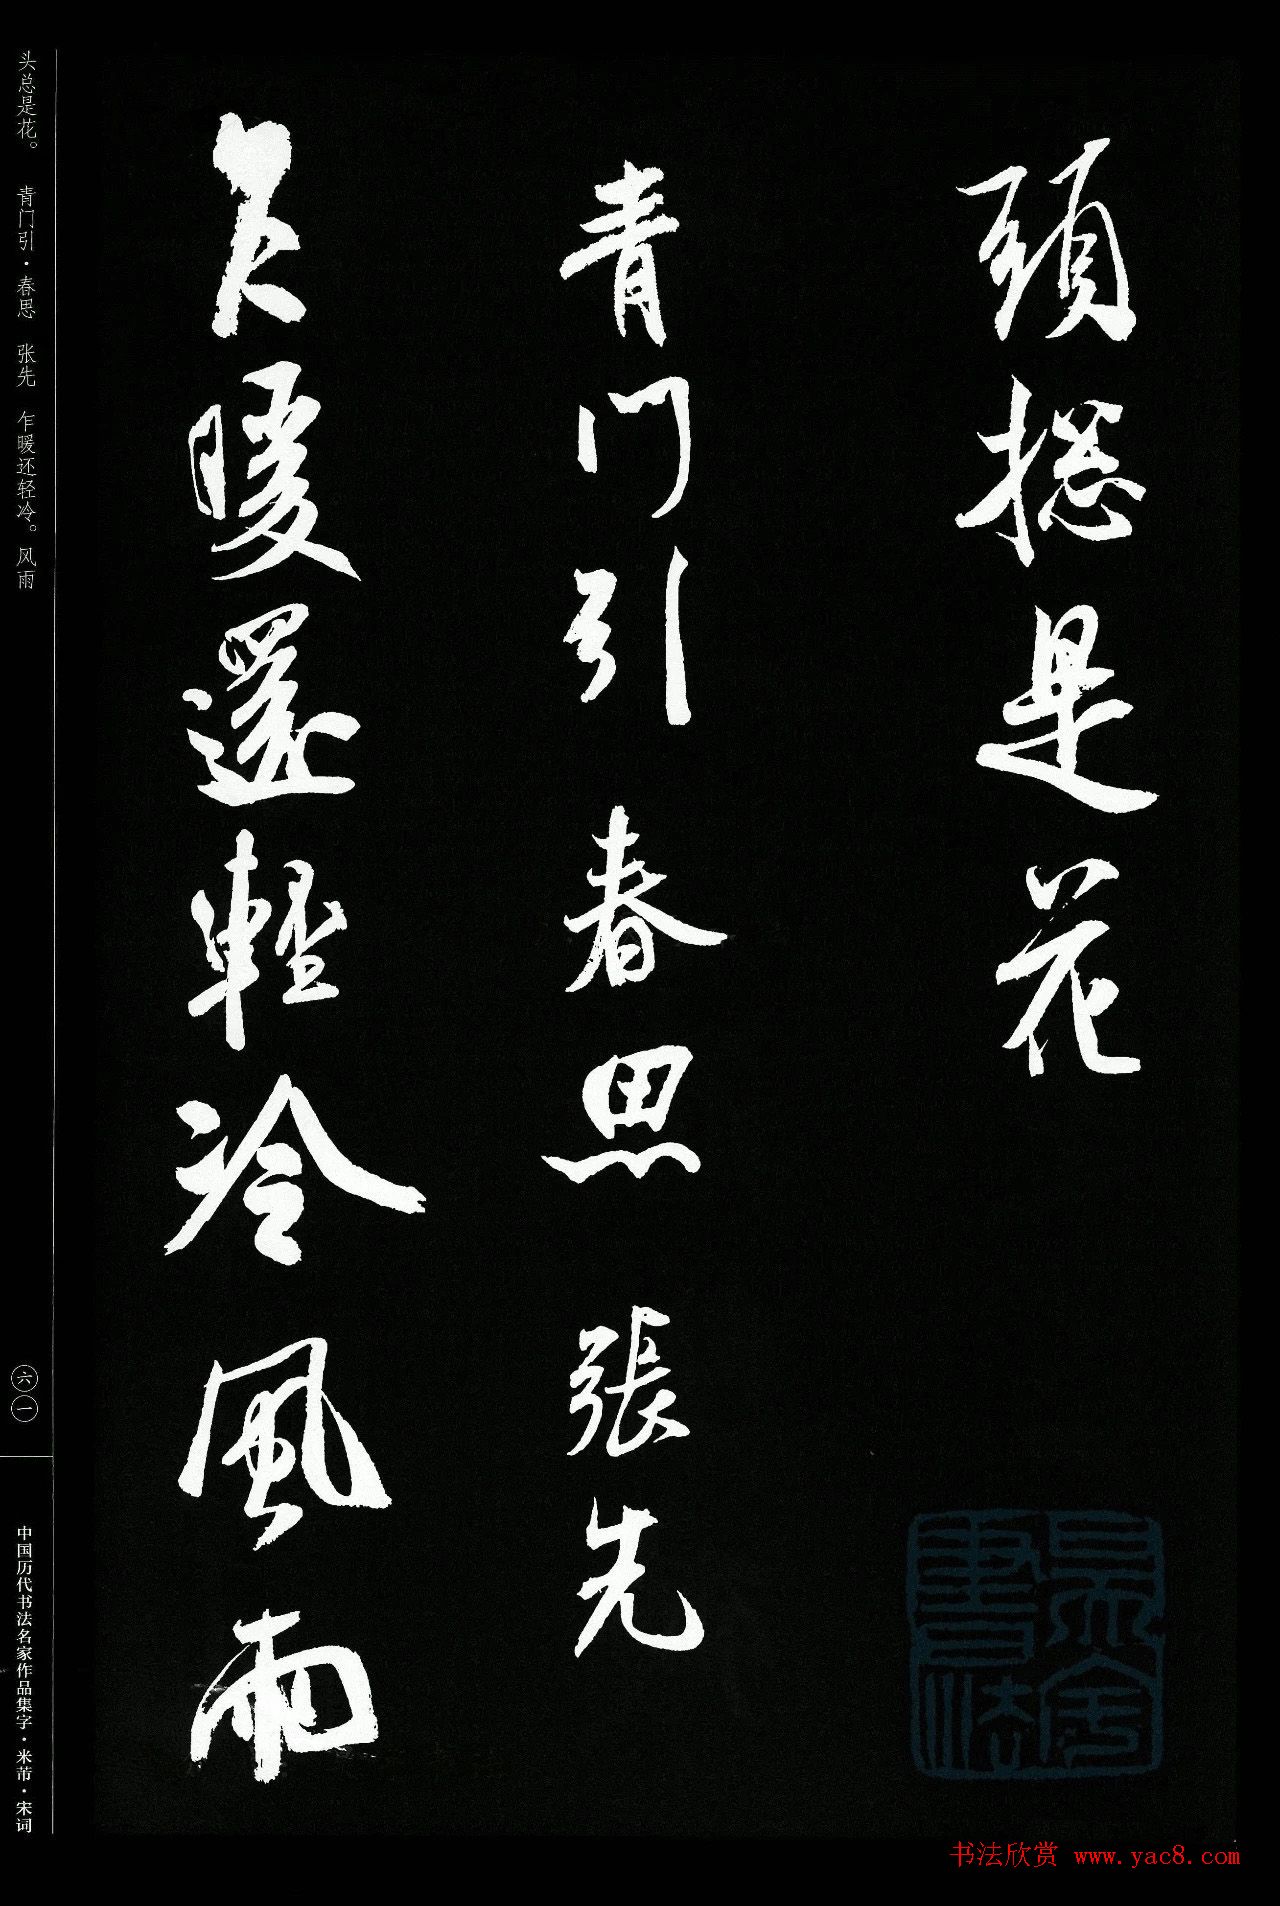 頭揔是花
青门引 春思 張先
乍暖還輕冷風雨
头总是花。 青门引·春思 张先 乍暖还轻冷。风雨
六一
中国历代书法名家作品集字·米芾·宋词
书法欣赏 www.yac8.com